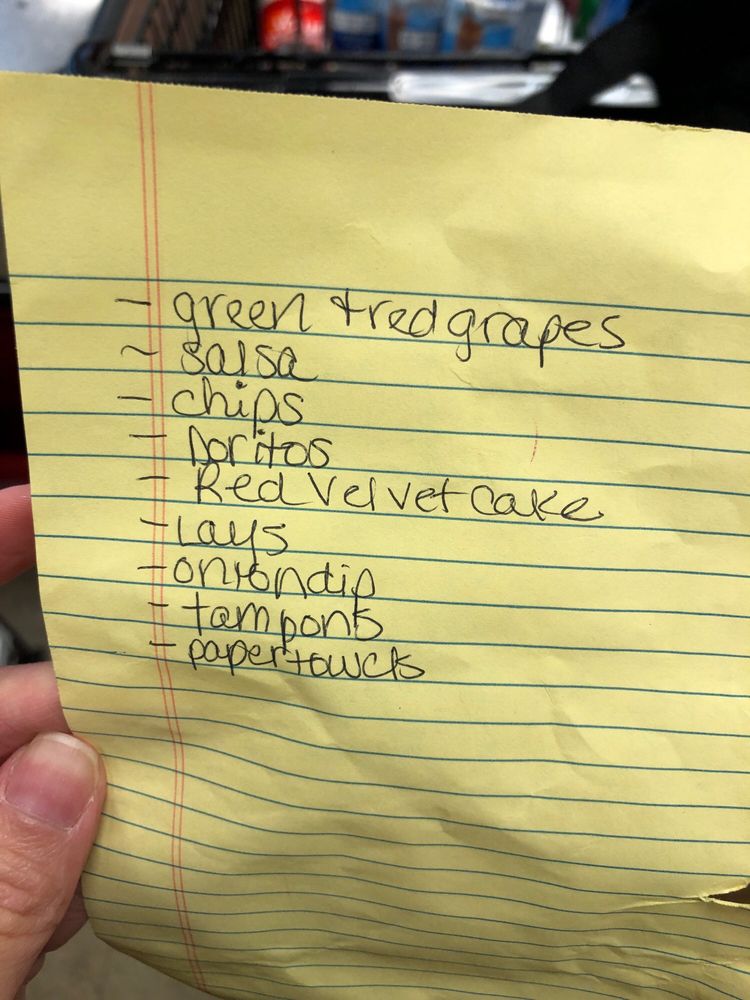 - green + red grapes
~ salsa
- chips
- Doritos
- Red Velvet cake
- Lays
- onion dip
- tampons
- paper towels